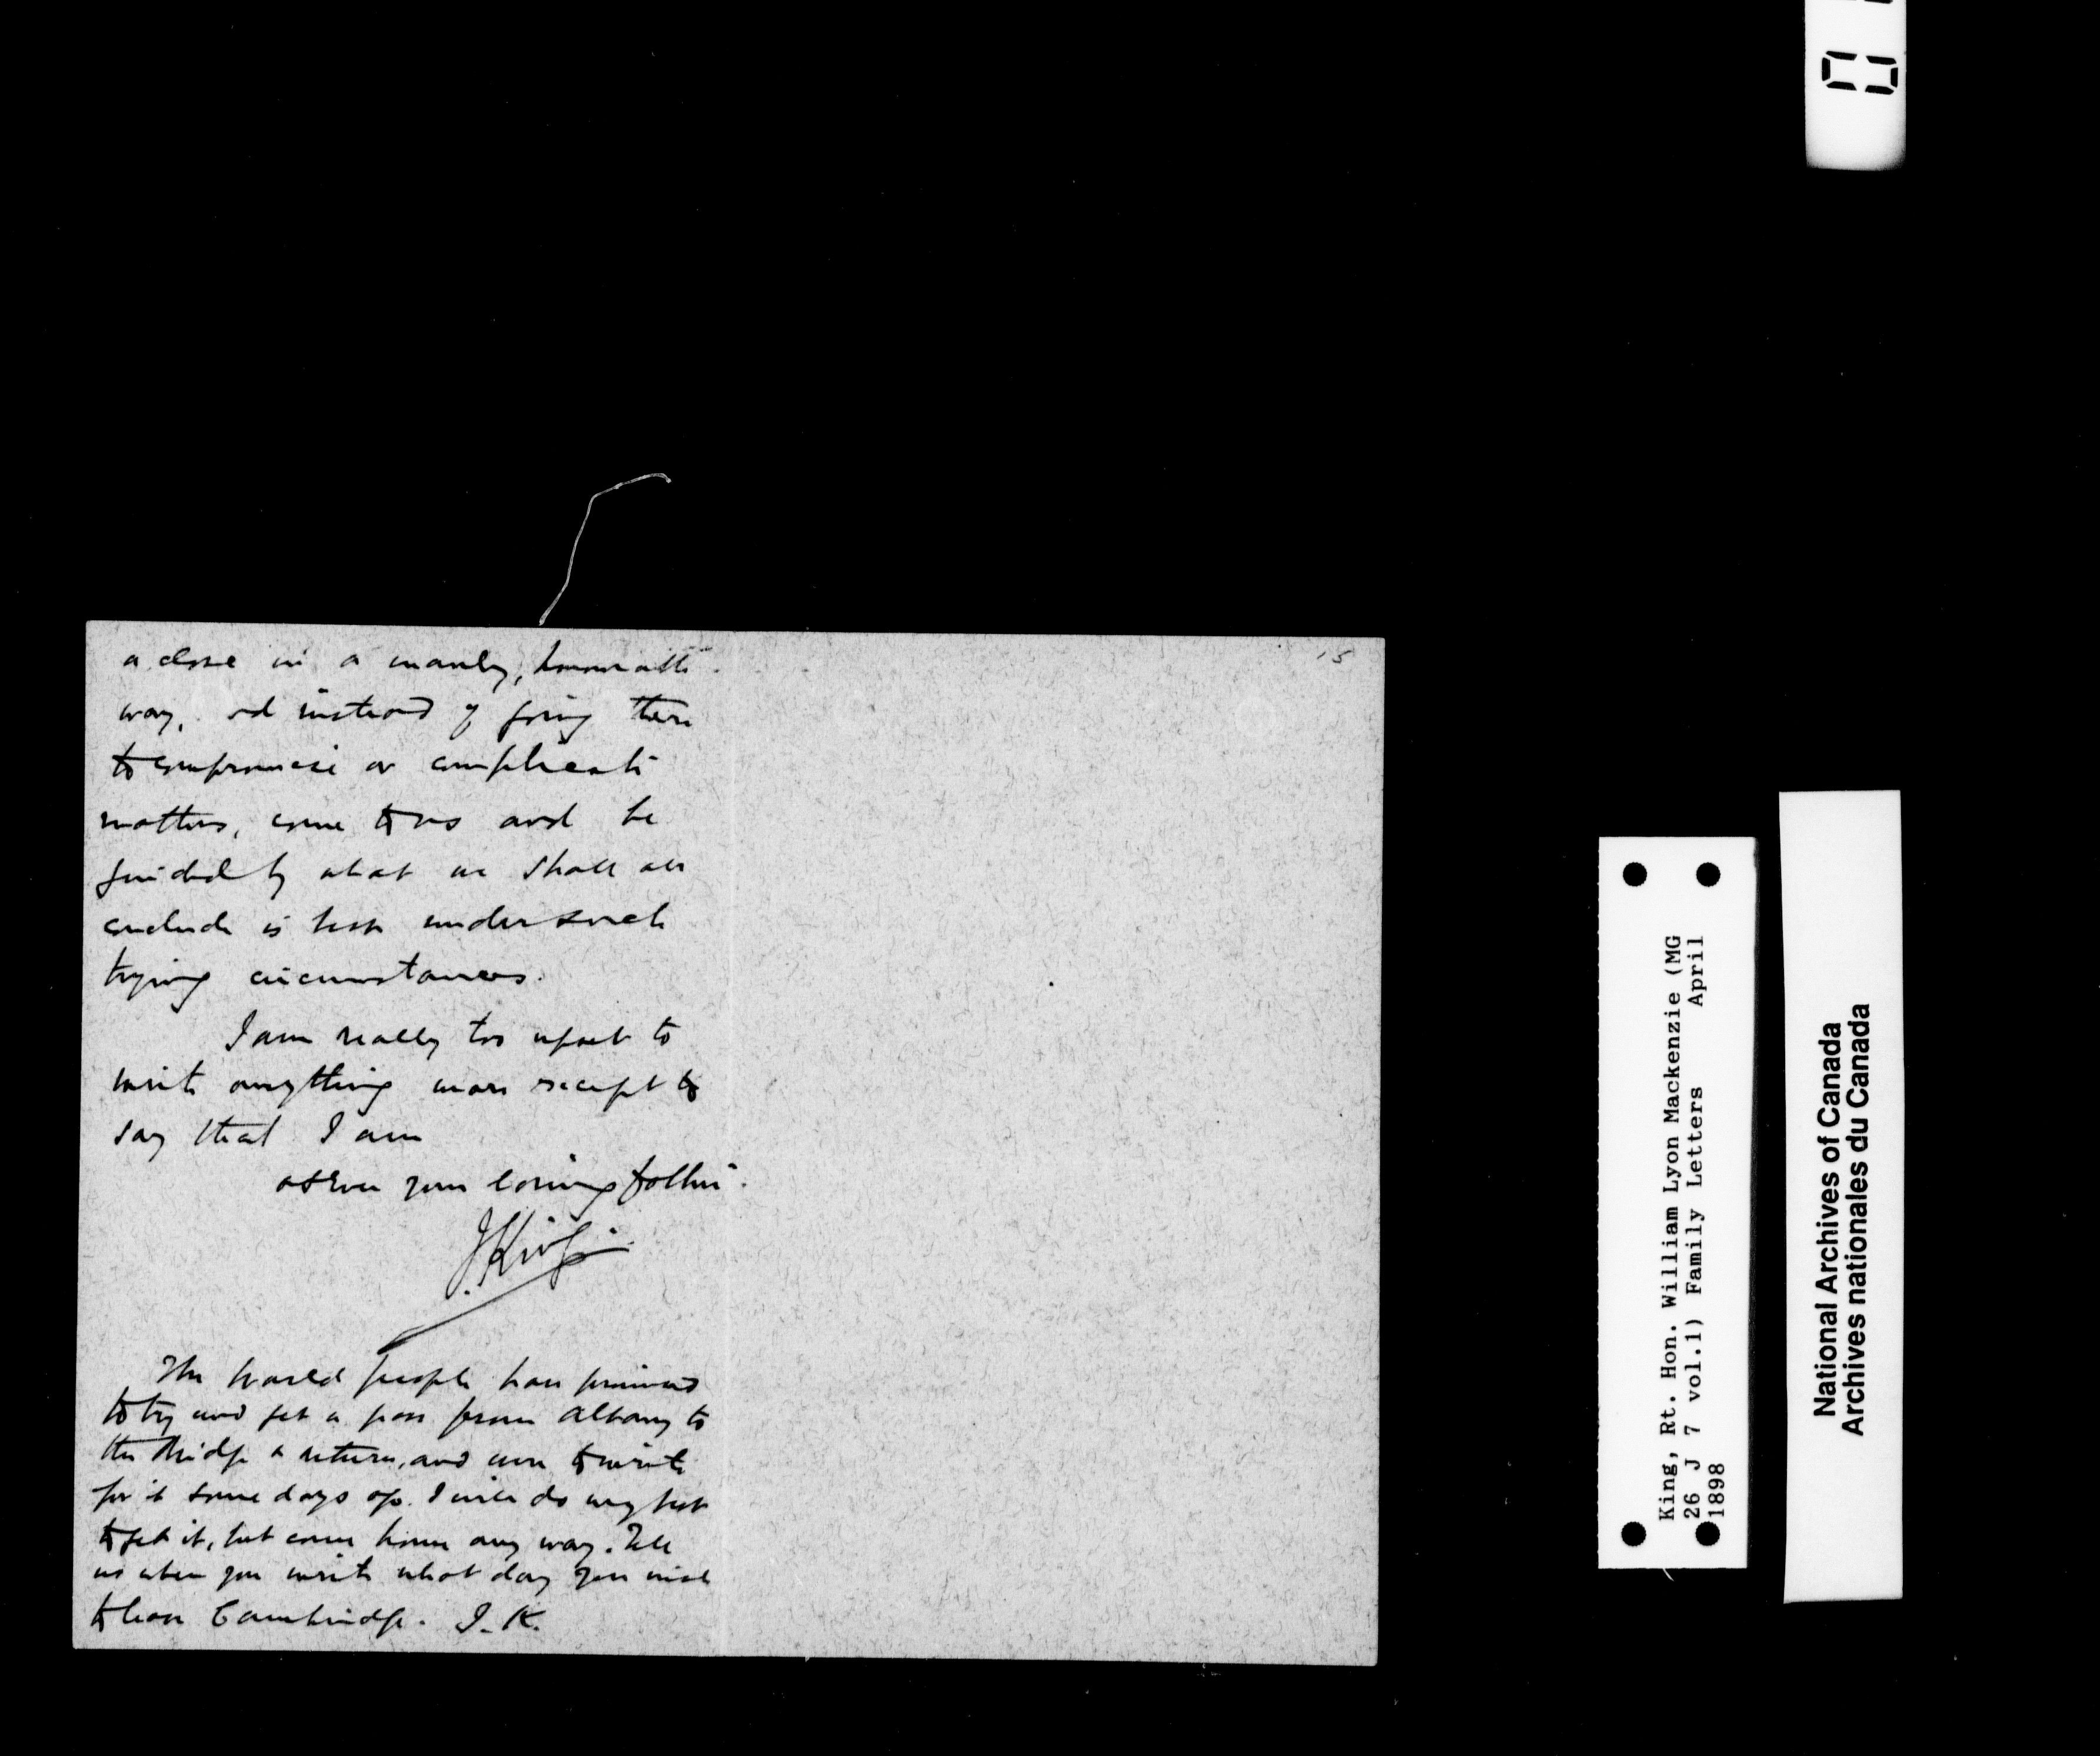 a close in a manly, honorable
way, and instead of going there
to compromise or complicate
matters, come to us and be
guided by what we shall all
conclude is best under such
trying circumstances.
I am really too upset to
write anything more except to
say that I am
as ever your loving father.
J King
The World people have promised
to try and get a pass from Albany to
the Bridge & return, and were to write
for it some days ago. I will do my best
to get it, but come home any way. Tell
us when you write what day you wish
to leave Cambridge. J. K.
15
King, Rt. Hon. William Lyon Mackenzie (MG
26 J 7 vol.1) Family Letters April
1898
National Archives of Canada
Archives nationales du Canada